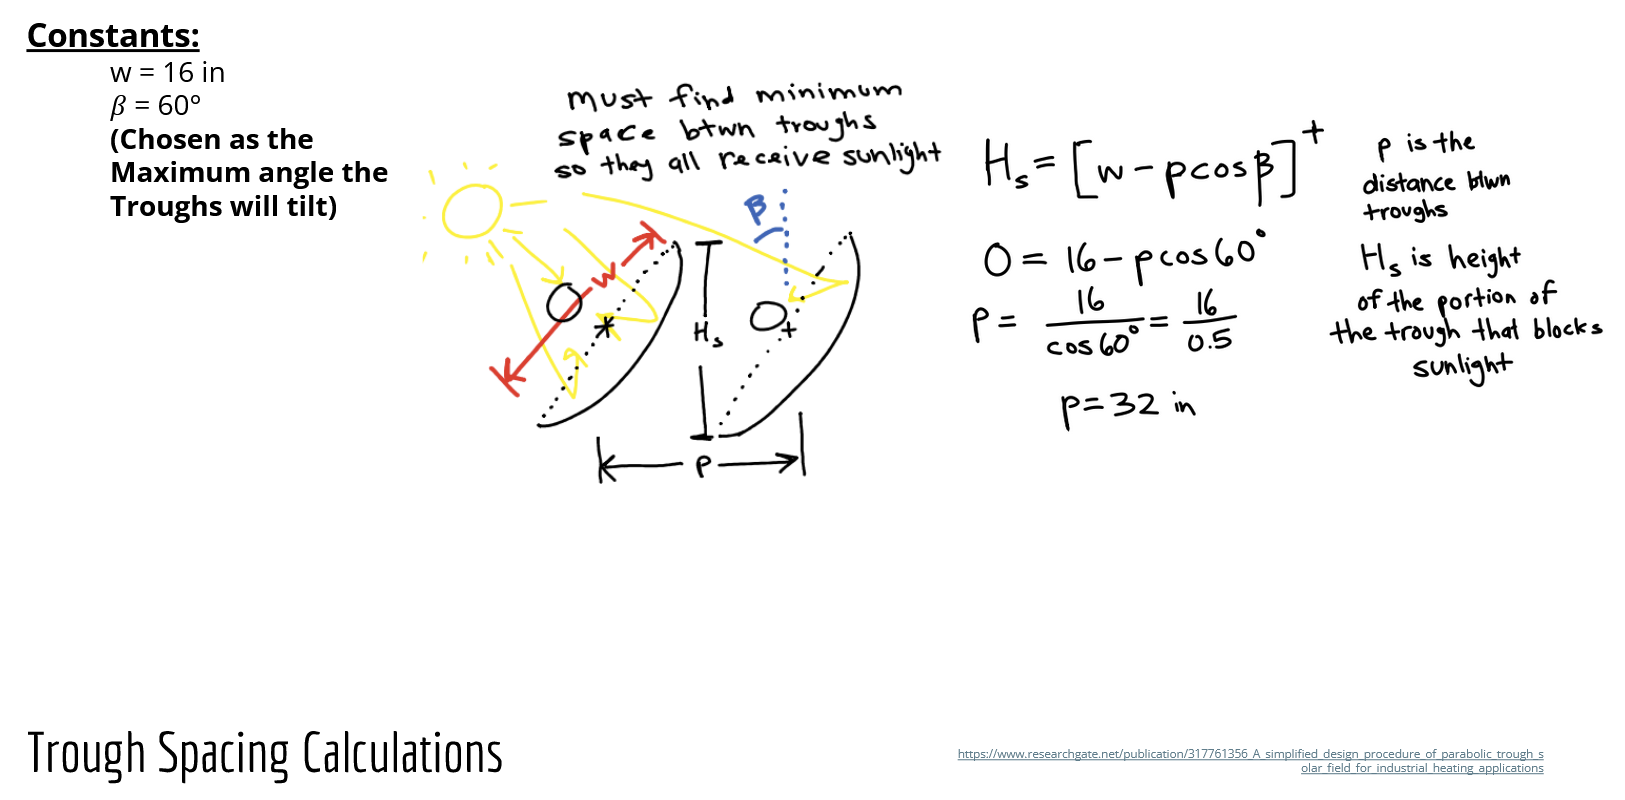 Constants:
w = 16 in
β = 60°
(Chosen as the
Maximum angle the
Troughs will tilt)
must find minimum
space btwn troughs
so they all receive sunlight
β
w
Hs
p
Hs = [w - pcosβ]⁺
0 = 16 - pcos60°
p = 16/cos60° = 16/0.5
p = 32 in
p is the
distance btwn
troughs
Hs is height
of the portion of
the trough that blocks
sunlight
Trough Spacing Calculations
https://www.researchgate.net/publication/317761356_A_simplified_design_procedure_of_parabolic_trough_s
olar_field_for_industrial_heating_applications